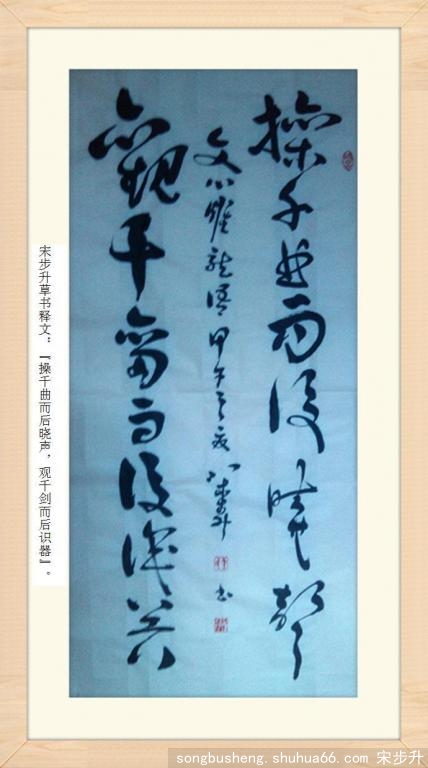 操千曲而后晓声
观千剑而后识器
文心雕龙语 甲午之夏 步升 书
宋步升草书释文:『操千曲而后晓声,观千剑而后识器』。
songbusheng.shuhua66.com 宋步升